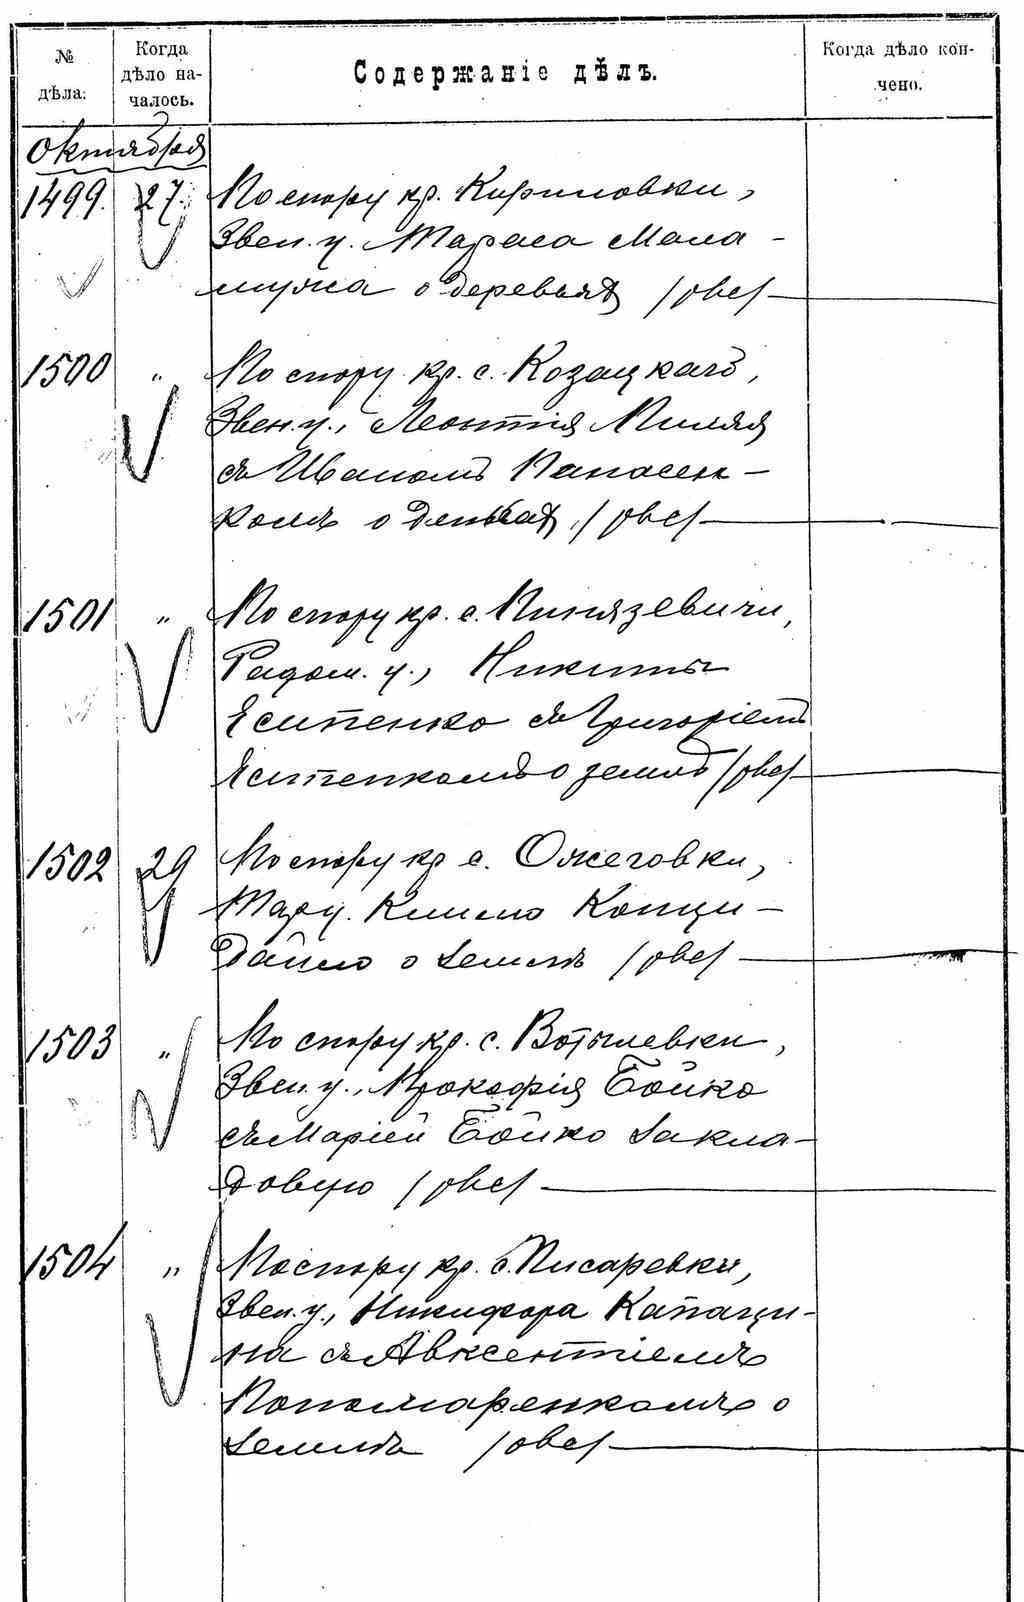 № дѣла.
Когда дѣло началось.
Содержаніе дѣлъ.
Когда дѣло кончено.
Октября
1499. 27. По спору кр. Кириловки,
Звен. у. Тараса Мала-
мужа о деревьяхъ
1500 " По спору кр. с. Козацкаго,
Звен. у., Леонтія Миляя
съ Иваномъ Панасен-
комъ о деньгахъ,
1501 " По спору кр. с. Минязевичи,
Радом. у., Никиты
Есипенко съ Григоріемъ
Есипенкомъ о землѣ
1502 29 По спору кр с. Ожеговки,
Тар. у. Климо Копци-
дайло о землѣ
1503 " По спору кр. с. Вотылевки,
Звен. у., Прокофія Бойко
съ Маріей Бойко закла-
довую
1504 " По спору кр. с. Писаревки,
Звен. у., Никифора Капаци-
на съ Авксентіемъ
Пономаренкомъ о
землѣ